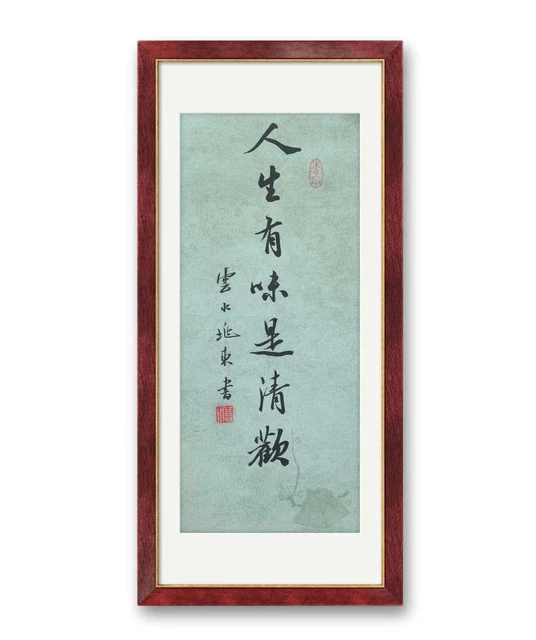 人生有味是清歡
雲水延東書